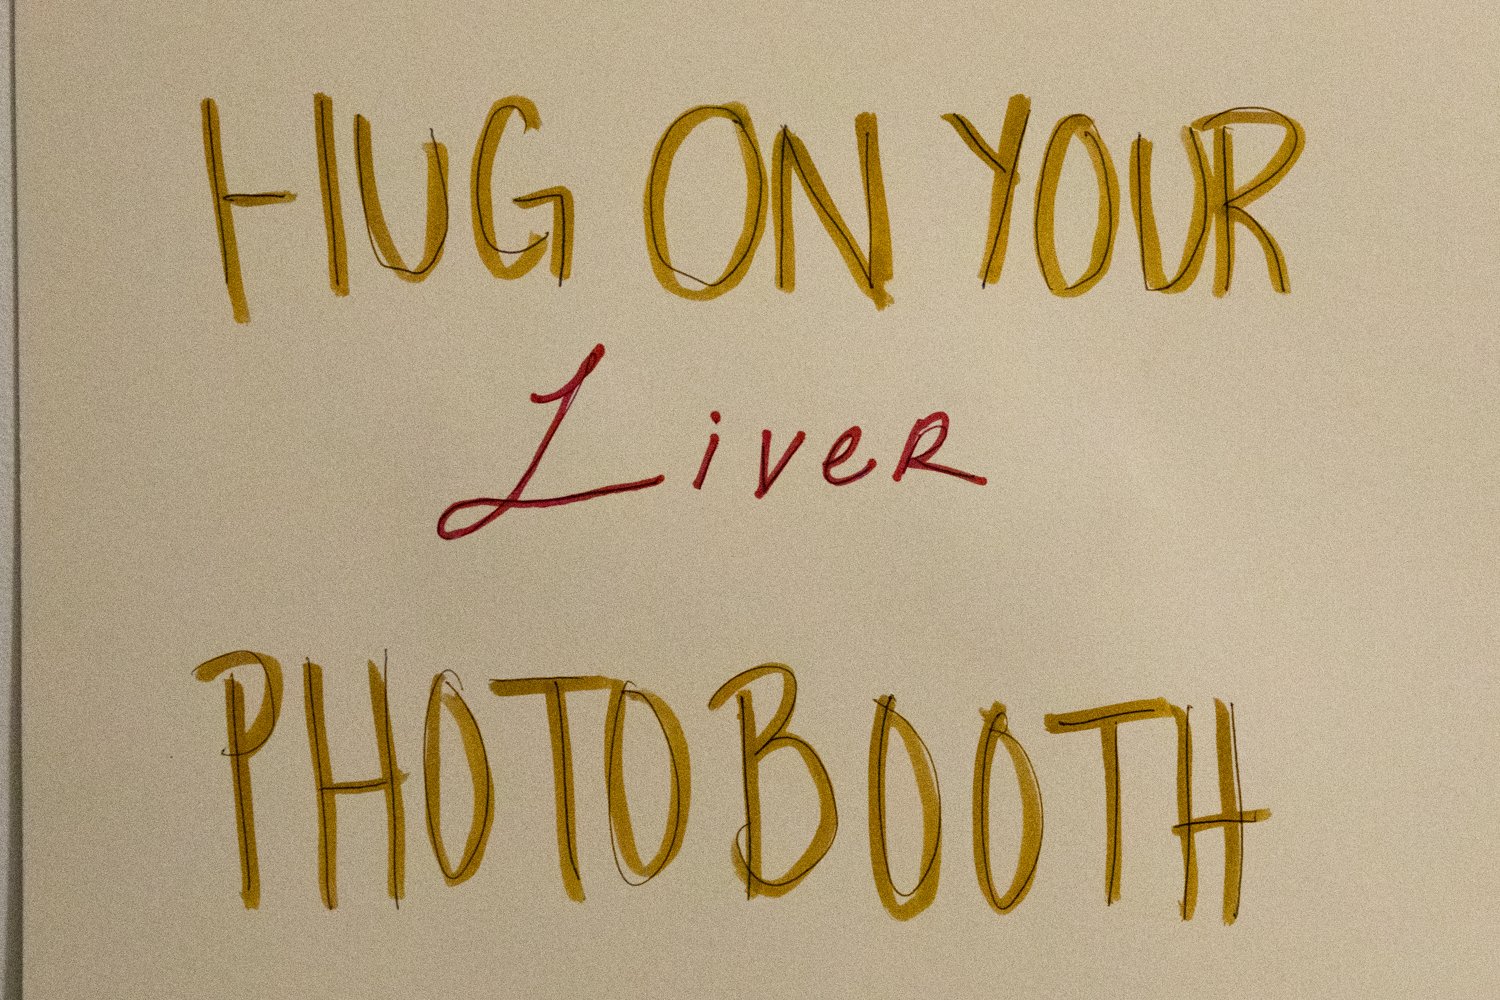 HUG ON YOUR
LiveR
PHOTOBOOTH